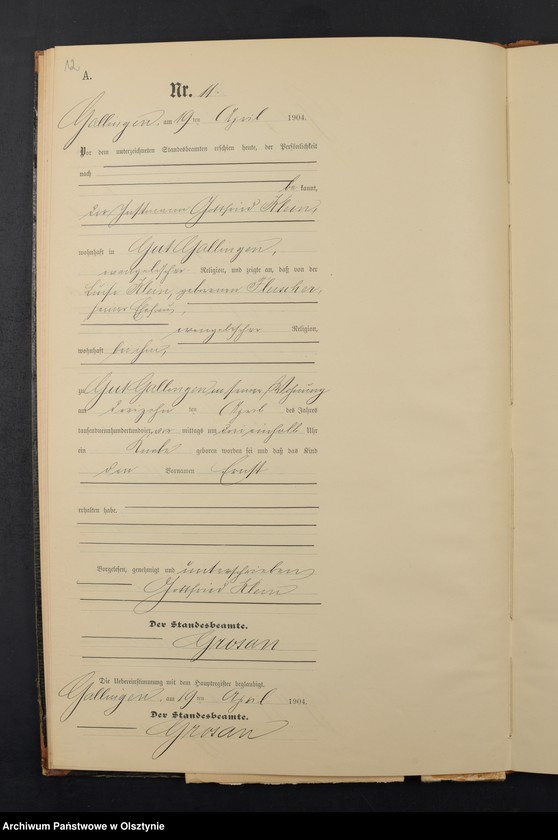 12
A.
Nr. 11.
Gallingen, am 19 ten April 1904.
Vor dem unterzeichneten Standesbeamten erschien heute, der Persönlichkeit
nach
be kannt,
der Instmann Gottfried Klein,
wohnhaft in Gut Gallingen,
evangelischer Religion, und zeigte an, daß von der
Klein, geborenen
seiner Ehefrau,
evangelischer Religion,
wohnhaft bei ihm,
zu Gut Gallingen, in seiner Wohnung
am ten April des Jahres
tausendneunhundertundvier, vor mittags um Uhr
ein Knabe geboren worden sei und daß das Kind
den Vornamen Ernst
erhalten habe.
Vorgelesen, genehmigt und unterschrieben
Gottfried Klein
Der Standesbeamte.
Grosan
Die Uebereinstimmung mit dem Hauptregister beglaubigt.
Gallingen, am 19 ten April 1904.
Der Standesbeamte.
Grosan
Archiwum Państwowe w Olsztynie